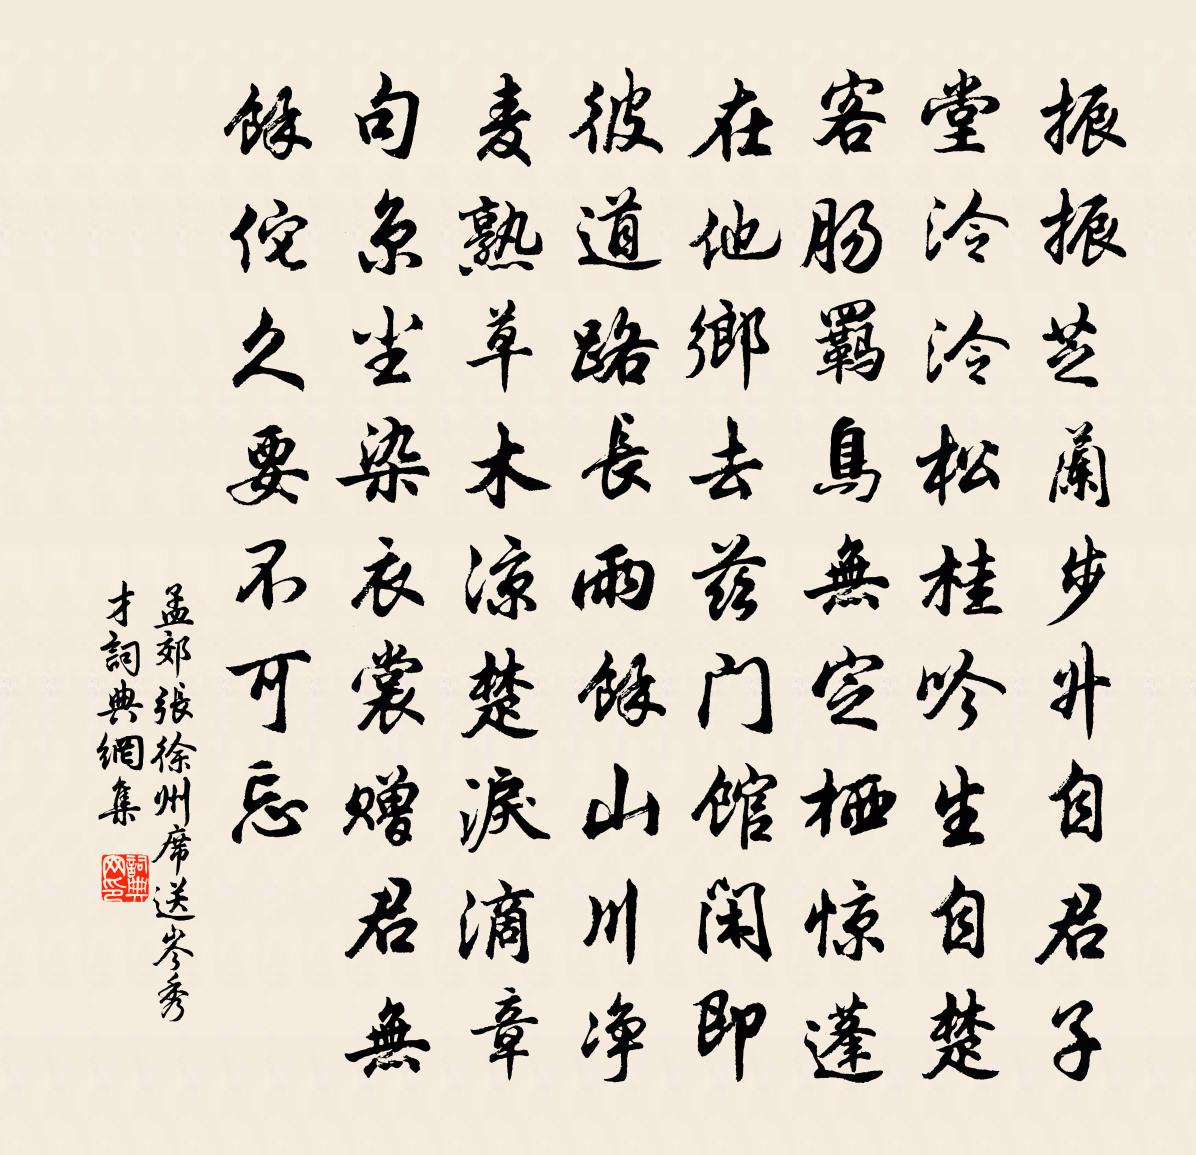 振振芝蘭步升自君子
堂泠泠松桂吟生自楚
客肠羁鳥無定栖惊蓬
在他鄉去兹门馆闲即
彼道路長雨餘山川净
麦熟草木凉楚淚滴章
句京尘染衣裳赠君無
餘佗久要不可忘
孟郊張徐州席送岑秀
才詞典網集
詞典网印